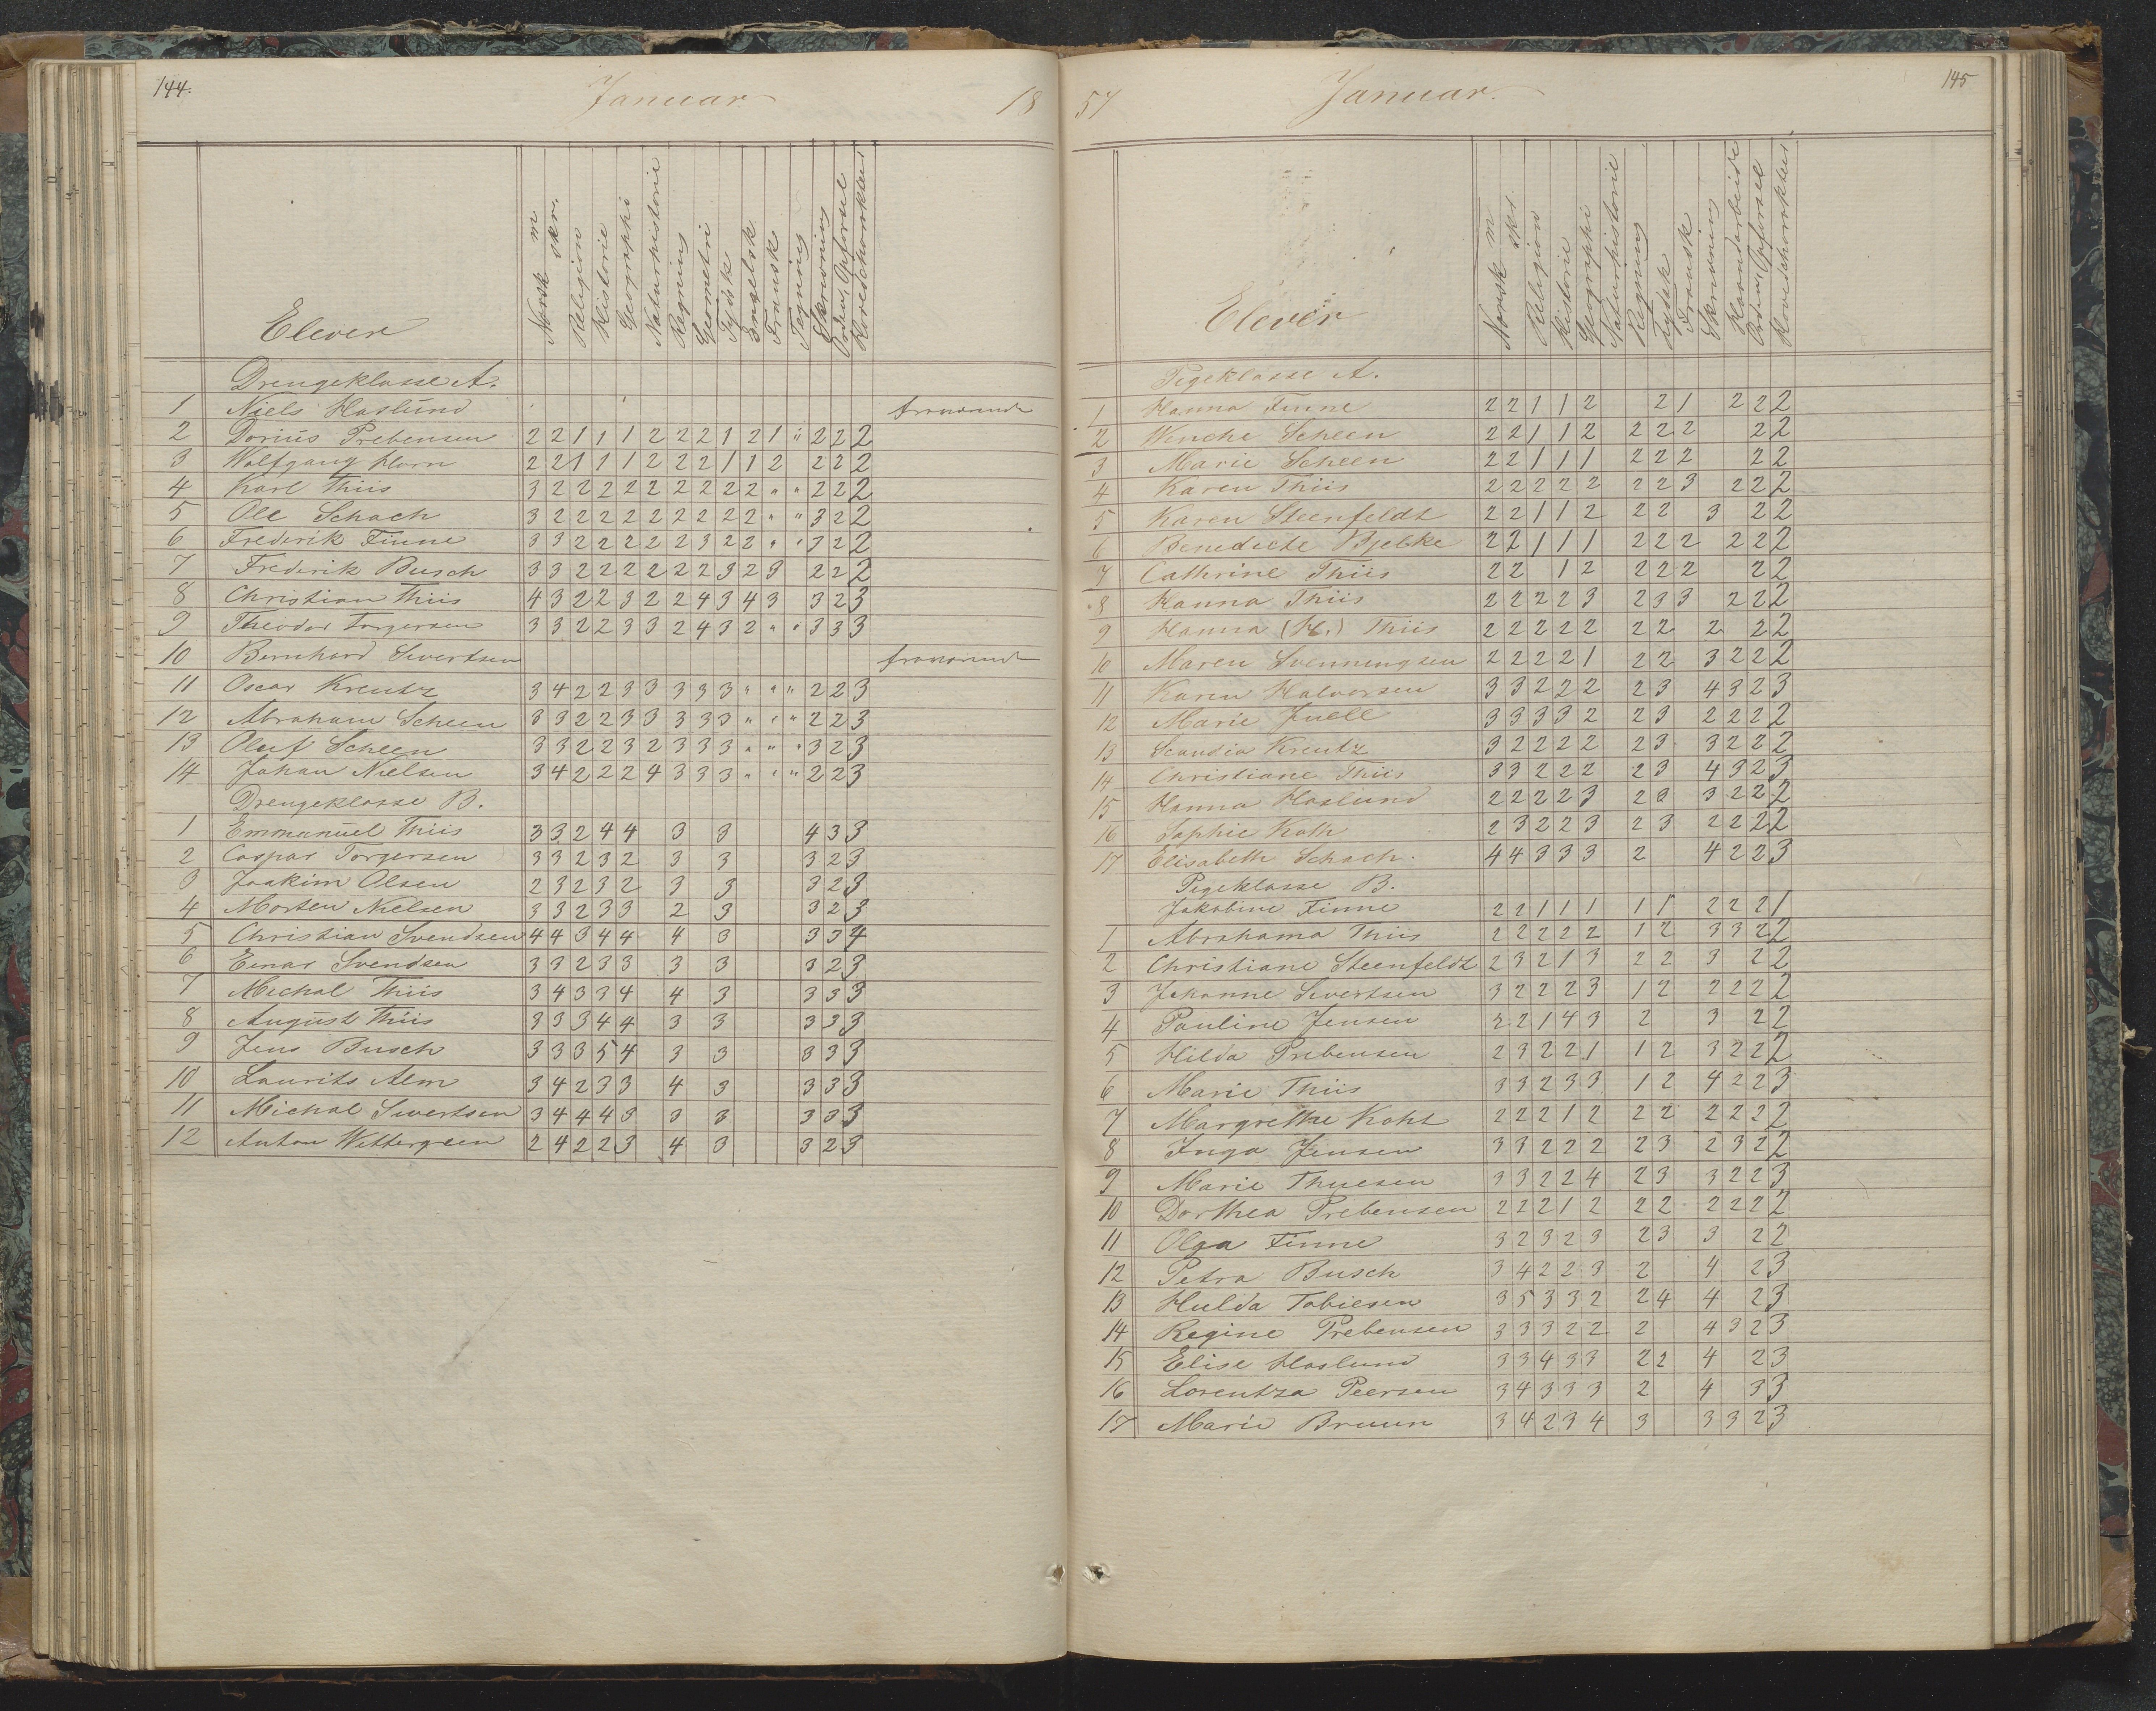 144.
Januar
18
Elever
Norsk m
skr.
Religion
Historie
Geographi
Naturhistorie
Regning
Geometri
Tydsk
Engelsk
Fransk
Tegning
Skrivning
Orden, Opførsel
Hovedcharakter
Drengeklasse A.
1 Niels Haslund fraværende
2 Dorius Prebensen 2 2 1 1 1 2 2 2 1 2 1 " 2 2 2
3 Wolfgang Horn 2 2 1 1 1 2 2 2 1 1 2 2 2 2
4 Karl Thiis 3 2 2 2 2 2 2 2 2 2 " " 2 2 2
5 Ole Schach 3 2 2 2 2 2 2 2 2 2 " " 3 2 2
6 Frederik Finne 3 3 2 2 2 2 2 3 2 2 " " 3 2 2
7 Frederik Busch 3 3 2 2 2 2 2 2 3 2 3 2 2 2
8 Christian Thiis 4 3 2 2 3 2 2 4 3 4 3 3 2 3
9 Theodor Torgersen 3 3 2 2 3 3 2 4 3 2 " " 3 3 3
10 Bernhard Sivertsen fraværende
11 Oscar Kreutz 3 4 2 2 3 3 3 3 3 " " " 2 2 3
12 Abraham Scheen 3 3 2 2 3 3 3 3 3 " " " 2 2 3
13 Oluf Scheen 3 3 2 2 3 2 3 3 3 " " " 3 2 3
14 Johan Nielsen 3 4 2 2 2 4 3 3 3 " " " 2 2 3
Drengeklasse B.
1 Emmanuel Thiis 3 3 2 4 4 3 3 4 3 3
2 Caspar Torgersen 3 3 2 3 2 3 3 3 2 3
3 Joakim Olsen 2 3 2 3 2 3 3 3 2 3
4 Morten Nielsen 3 3 2 3 3 2 3 3 2 3
5 Christian Svendsen 4 4 3 4 4 4 3 3 3 4
6 Einar Svendsen 3 3 2 3 3 3 3 3 2 3
7 Michal Thiis 3 4 3 3 4 4 3 3 3 3
8 August Thiis 3 3 3 4 4 3 3 3 3 3
9 Jens Busch 3 3 3 5 4 3 3 3 3 3
10 Laurits Alm 3 4 2 3 3 4 3 3 3 3
11 Michal Sivertsen 3 4 4 4 3 3 3 3 3 3
12 Anton Wettergreen 2 4 2 2 3 4 3 3 2 3
57
Januar.
145
Elever
Norsk m
skr.
Religion
Historie
Geographi
Naturhistorie
Regning
Tydsk
Fransk
Skrivning
Haandarbeide
Orden, Opførsel
Hovedcharakter
Pigeklasse A.
1 Hanna Finne 2 2 1 1 2 2 1 2 2 2
2 Wenche Scheen 2 2 1 1 2 2 2 2 2 2
3 Marie Scheen 2 2 1 1 1 2 2 2 2 2
4 Karen Thiis 2 2 2 2 2 2 2 3 2 2 2
5 Karen Steenfeldt 2 2 1 1 2 2 2 3 2 2
6 Benedicte Bjelke 2 2 1 1 1 2 2 2 2 2 2
7 Cathrine Thiis 2 2 1 2 2 2 2 2 2
8 Hanna Thiis 2 2 2 2 3 2 3 3 2 2 2
9 Hanna (H.) Thiis 2 2 2 2 2 2 2 2 2 2
10 Maren Svenningsen 2 2 2 2 1 2 2 3 2 2 2
11 Karen Halvorsen 3 3 2 2 2 2 3 4 3 2 3
12 Marie Juell 3 3 3 3 2 2 3 2 2 2 2
13 Scandia Kreutz 3 2 2 2 2 2 3 3 2 2 2
14 Christiane Thiis 3 3 2 2 2 2 3 4 3 2 3
15 Hanna Haslund 2 2 2 2 3 2 3 3 2 2 2
16 Sophie Koth 2 3 2 2 3 2 3 2 2 2 2
17 Elisabeth Schach. 4 4 3 3 3 2 4 2 2 3
Pigeklasse B.
Jakobine Finne 2 2 1 1 1 1 1 2 2 2 1
1 Abrahama Thiis 2 2 2 2 2 1 2 3 3 2 2
2 Christiane Steenfeldt 2 3 2 1 3 2 2 3 2 2
3 Johanne Sivertsen 3 2 2 2 3 1 2 2 2 2 2
4 Pauline Jensen 2 2 1 4 3 2 3 2 2
5 Hilda Prebensen 2 3 2 2 1 1 2 3 2 2 2
6 Marie Thiis 3 3 2 3 3 1 2 4 2 2 3
7 Margrethe Koht 2 2 2 1 2 2 2 2 2 2 2
8 Inga Jensen 3 3 2 2 2 2 3 2 3 2 2
9 Marie Thuesen 3 3 2 2 4 2 3 3 2 2 3
10 Dorthea Prebensen 2 2 2 1 2 2 2 2 2 2 2
11 Olga Finne 3 2 3 2 3 2 3 3 2 2
12 Petra Busch 3 4 2 2 3 2 4 2 3
13 Hulda Tobiesen 3 5 3 3 2 2 4 4 2 3
14 Regine Prebensen 3 3 3 2 2 2 4 3 2 3
15 Elise Haslund 3 3 4 3 3 2 2 4 2 3
16 Lorentza Peersen 3 4 3 3 3 2 4 3 3
17 Marie Bruun 3 4 2 3 4 3 3 3 2 3